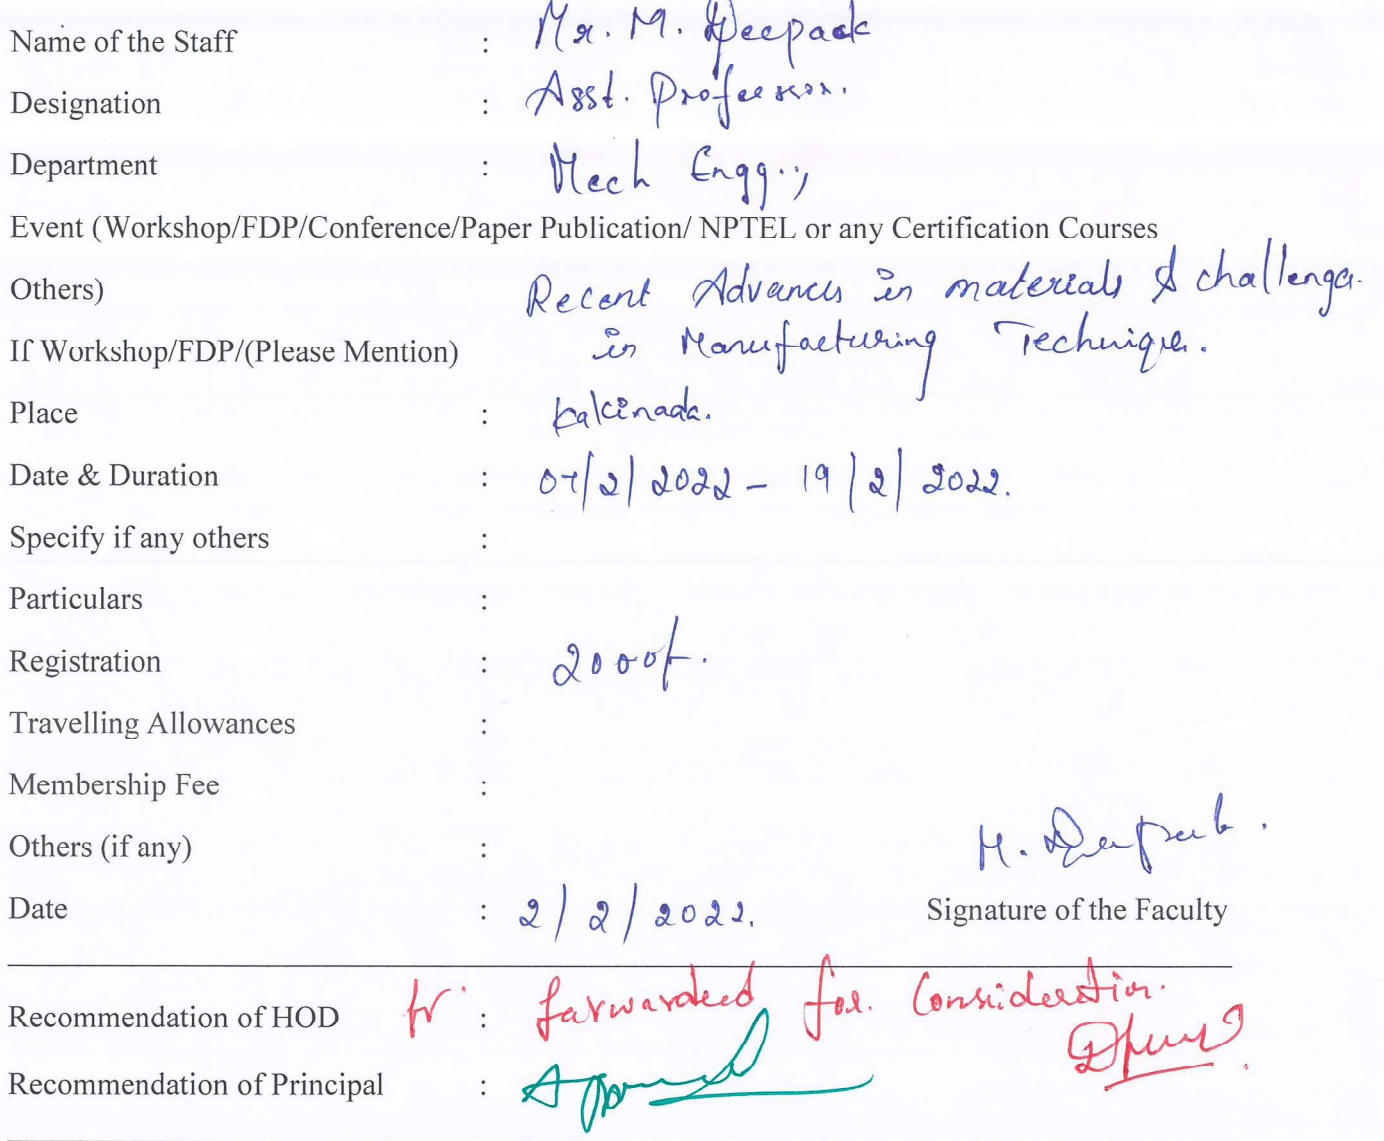 Name of the Staff : Mr. M. Deepack
Designation : Asst. Professor.
Department : Mech Engg.,
Event (Workshop/FDP/Conference/Paper Publication/ NPTEL or any Certification Courses
Others) Recent Advances in materials & challenges
If Workshop/FDP/(Please Mention) in Manufacturing Technique.
Place : Kakinada.
Date & Duration : 07/2/2022 - 19/2/2022.
Specify if any others :
Particulars :
Registration : 2000/-.
Travelling Allowances :
Membership Fee :
M. Deepack.
Others (if any) :
Date : 2/2/2022. Signature of the Faculty
Recommendation of HOD : forwarded for Consideration.
Recommendation of Principal : Approved